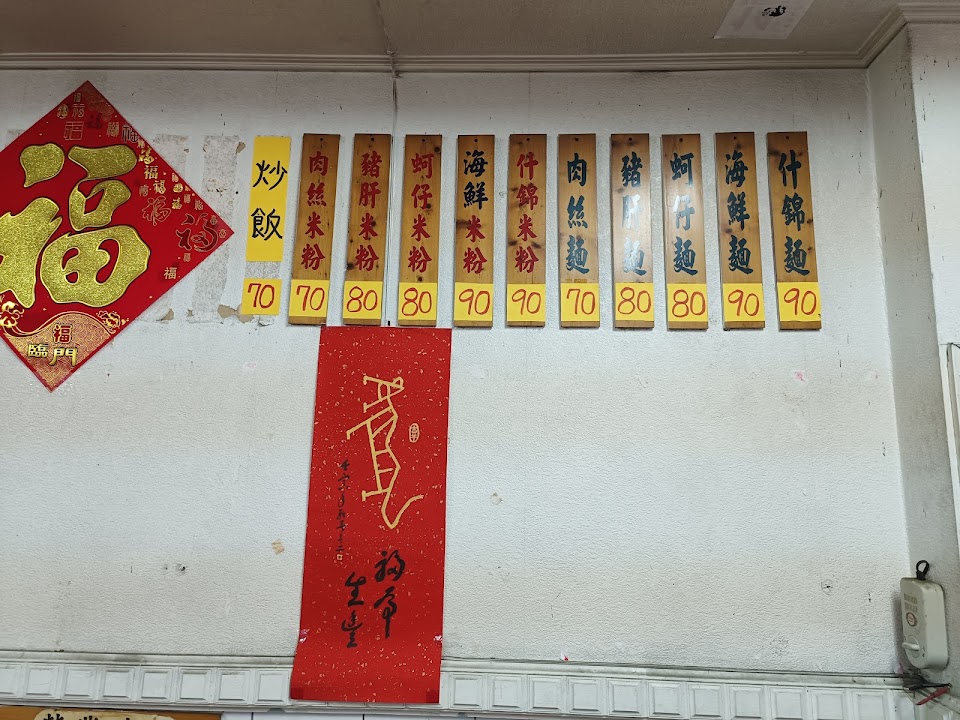 什錦麵 90
海鮮麵 90
蚵仔麵 80
豬肝麵 80
肉絲麵 70
什錦米粉 90
海鮮米粉 90
蚵仔米粉 80
豬肝米粉 80
肉絲米粉 70
炒飯 70
福
福
臨門
福虎
生豐